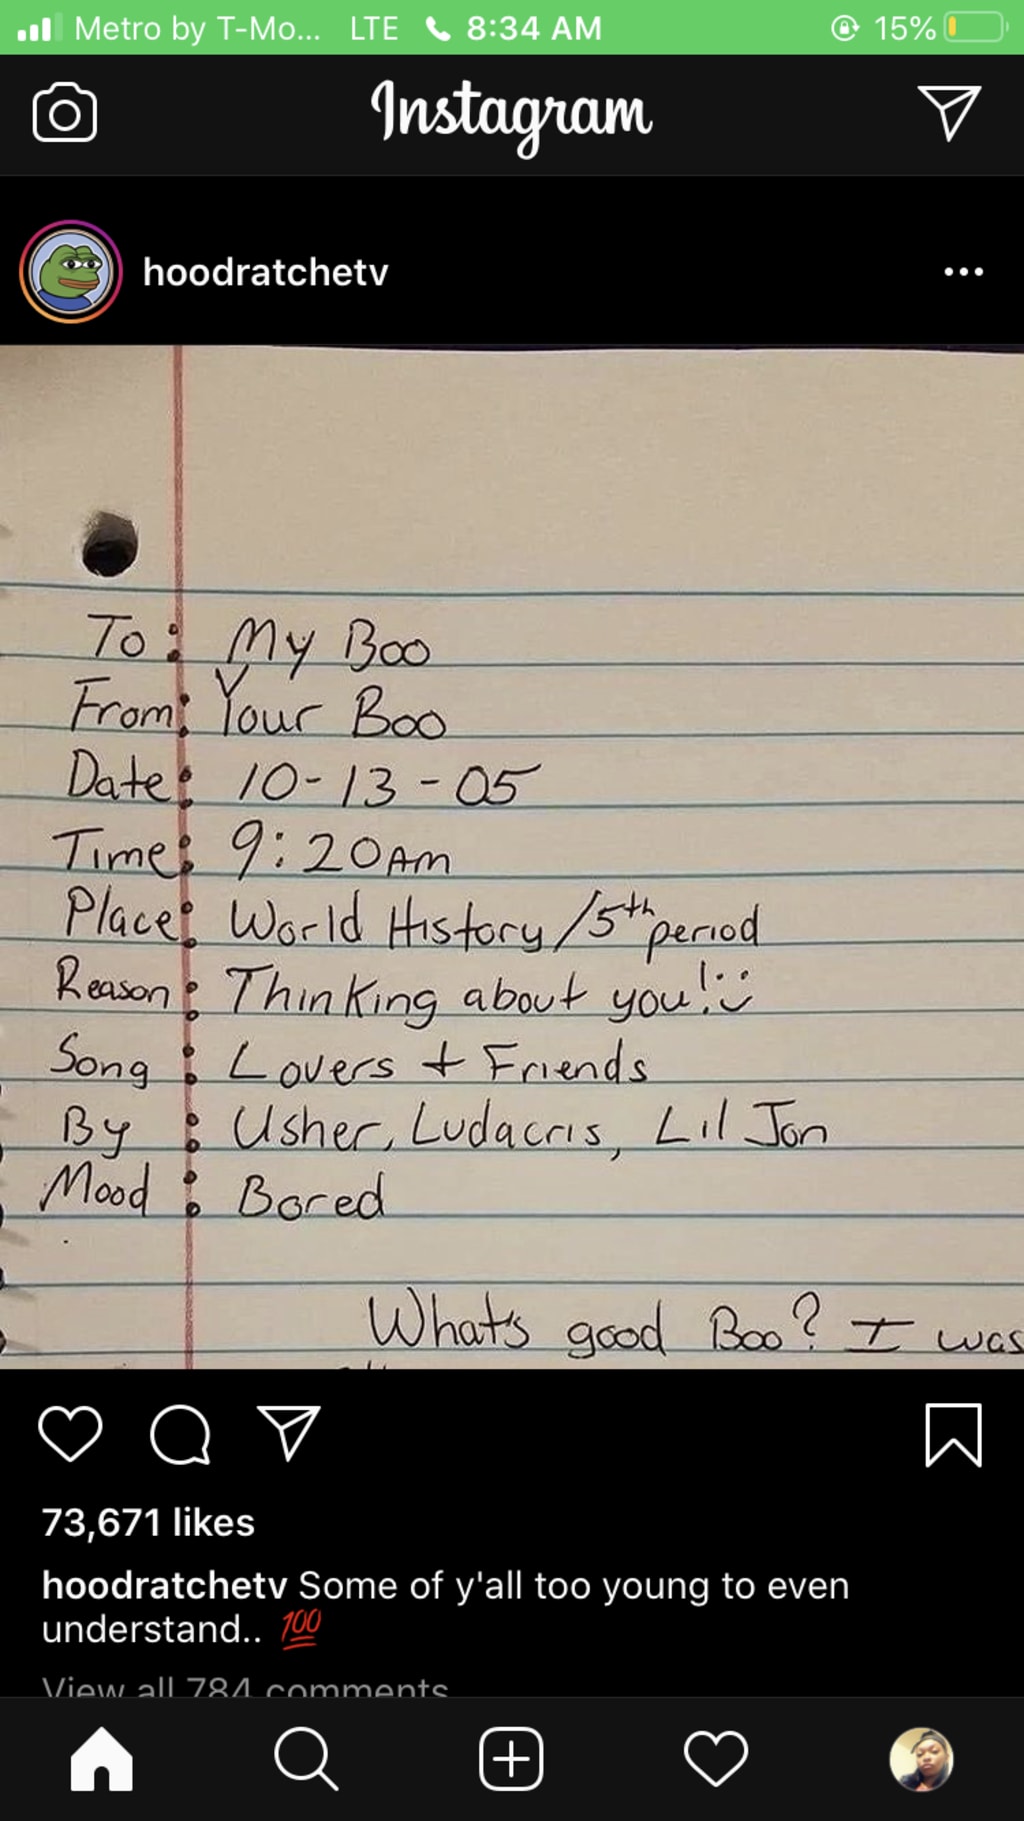 Metro by T-Mo... LTE 8:34 AM 15%
Instagram
hoodratchetv
To: My Boo
From: Your Boo
Date: 10-13-05
Time: 9:20AM
Place: World History/5th period
Reason: Thinking about you! :)
Song: Lovers + Friends
By: Usher, Ludacris, Lil Jon
Mood: Bored
What's good Boo? I was
73,671 likes
hoodratchetv Some of y'all too young to even
understand.. 💯
View all 784 comments